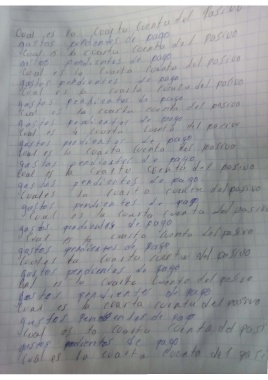 Cual es la cuarta cuenta del pasivo
gastos pendientes de pago
Cual es la cuarta cuenta del pasivo
gastos pendientes de pago
Cual es la cuarta cuenta del pasivo
gastos pendientes de pago
Cual es la cuarta cuenta del pasivo
gastos pendientes de pago
Cual es la cuarta cuenta del pasivo
gastos pendientes de pago
Cual es la cuarta cuenta del pasivo
gastos pendientes de pago
Cual es la cuarta cuenta del pasivo
gastos pendientes de pago
Cual es la cuarta cuenta del pasivo
gastos pendientes de pago
Cual es la cuarta cuenta del pasivo
gastos pendientes de pago
Cual es la cuarta cuenta del pasivo
gastos pendientes de pago
Cual es la cuarta cuenta del pasivo
gastos pendientes de pago
Cual es la cuarta cuenta del pasivo
gastos pendientes de pago
Cual es la cuarta cuenta del pasivo
gastos pendientes de pago
Cual es la cuarta cuenta del pasi
gastos pendientes de pago
Cual es la cuarta cuenta del pasi